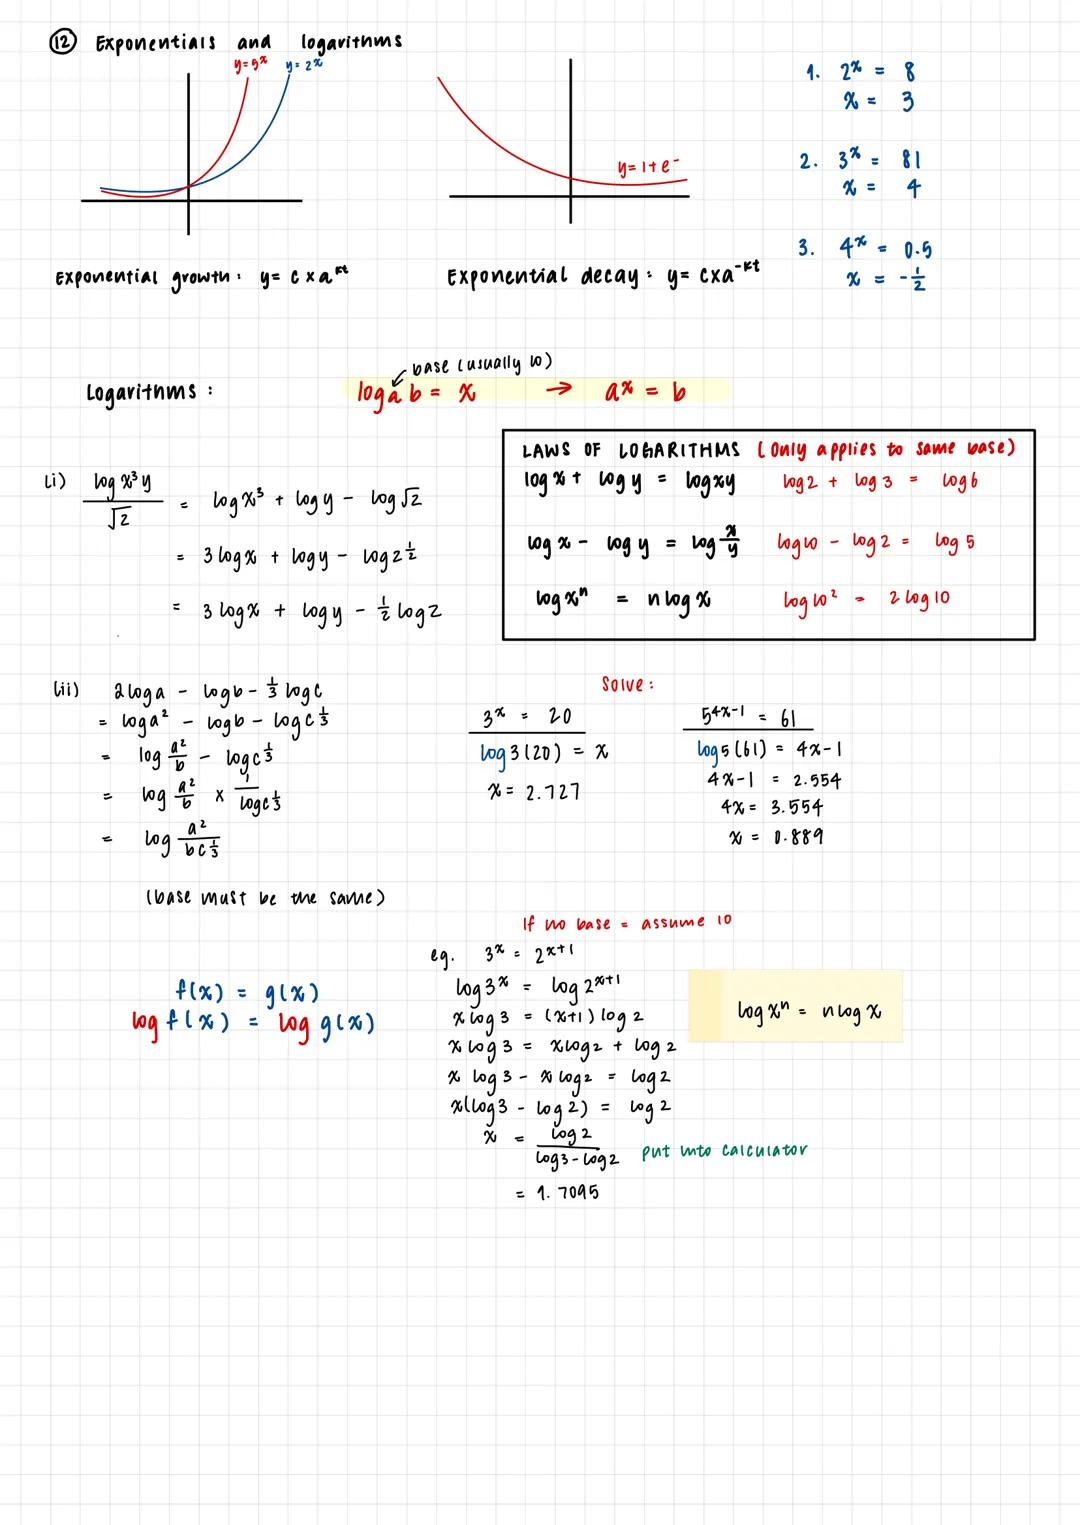 ⑫ Exponentials and logarithms
y=5ˣ y=2ˣ
y=1+e⁻
Exponential growth: y= c×aᵏᵗ
Exponential decay: y= c×a⁻ᵏᵗ
1. 2ˣ = 8
x = 3
2. 3ˣ = 81
x = 4
3. 4ˣ = 0.5
x = -1/2
base (usually 10)
Logarithms : logₐ b = x → aˣ = b
LAWS OF LOGARITHMS (Only applies to same base)
log x + log y = log xy log 2 + log 3 = log 6
log x - log y = log x/y log 10 - log 2 = log 5
log xⁿ = n log x log 10² = 2 log 10
(i) log x³y / √2 = log x³ + log y - log √2
= 3 log x + log y - log 2^1/2
= 3 log x + log y - 1/2 log 2
(ii) 2 log a - log b - 1/3 log c
= log a² - log b - log c^1/3
= log a²/b - log c^1/3
= log a²/b × 1/log c^1/3
= log a²/bc^1/3
(base must be the same)
Solve :
3ˣ = 20
log 3 (20) = x
x = 2.727
5^4x-1 = 61
log 5 (61) = 4x-1
4x-1 = 2.554
4x = 3.554
x = 0.889
If no base = assume 10
f(x) = g(x)
log f(x) = log g(x)
eg. 3ˣ = 2ˣ⁺¹
log 3ˣ = log 2ˣ⁺¹
x log 3 = (x+1) log 2
x log 3 = x log 2 + log 2
x log 3 - x log 2 = log 2
x(log 3 - log 2) = log 2
x = log 2 / log 3 - log 2 put into calculator
= 1.7095
log xⁿ = n log x